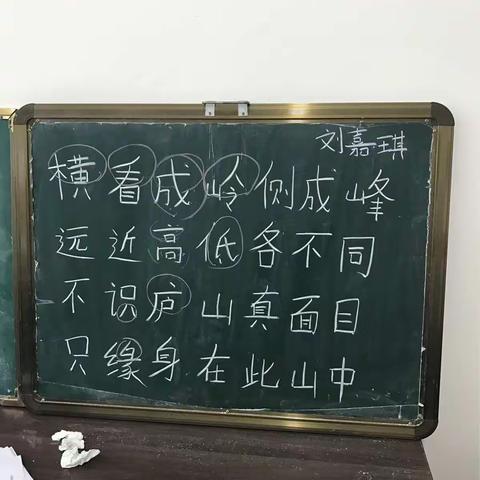 刘嘉琪
横看成岭侧成峰
远近高低各不同
不识庐山真面目
只缘身在此山中